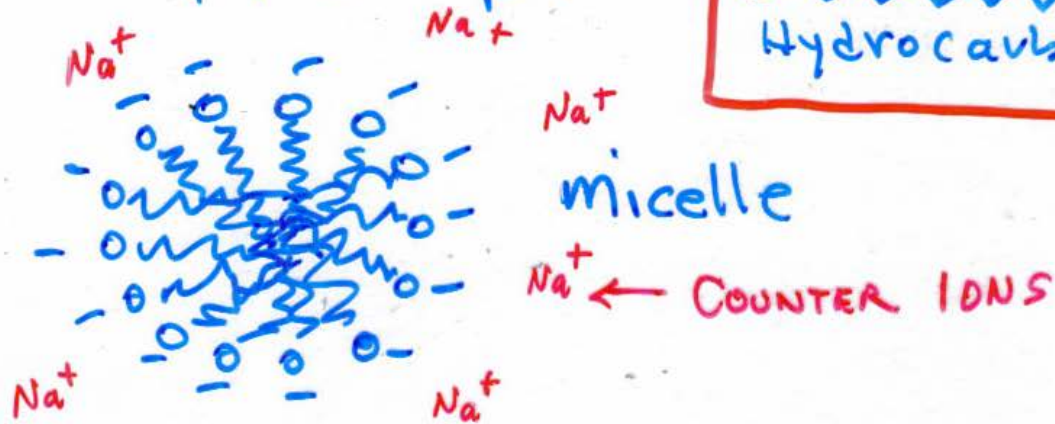 Na+
Na+
Hydrocarb
Na+
micelle
Na+ ← COUNTER IONS
Na+
Na+